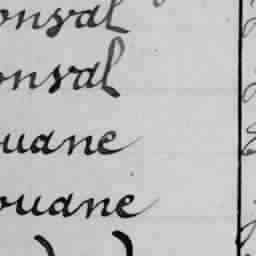 onsal
onsal
ouane
ouane